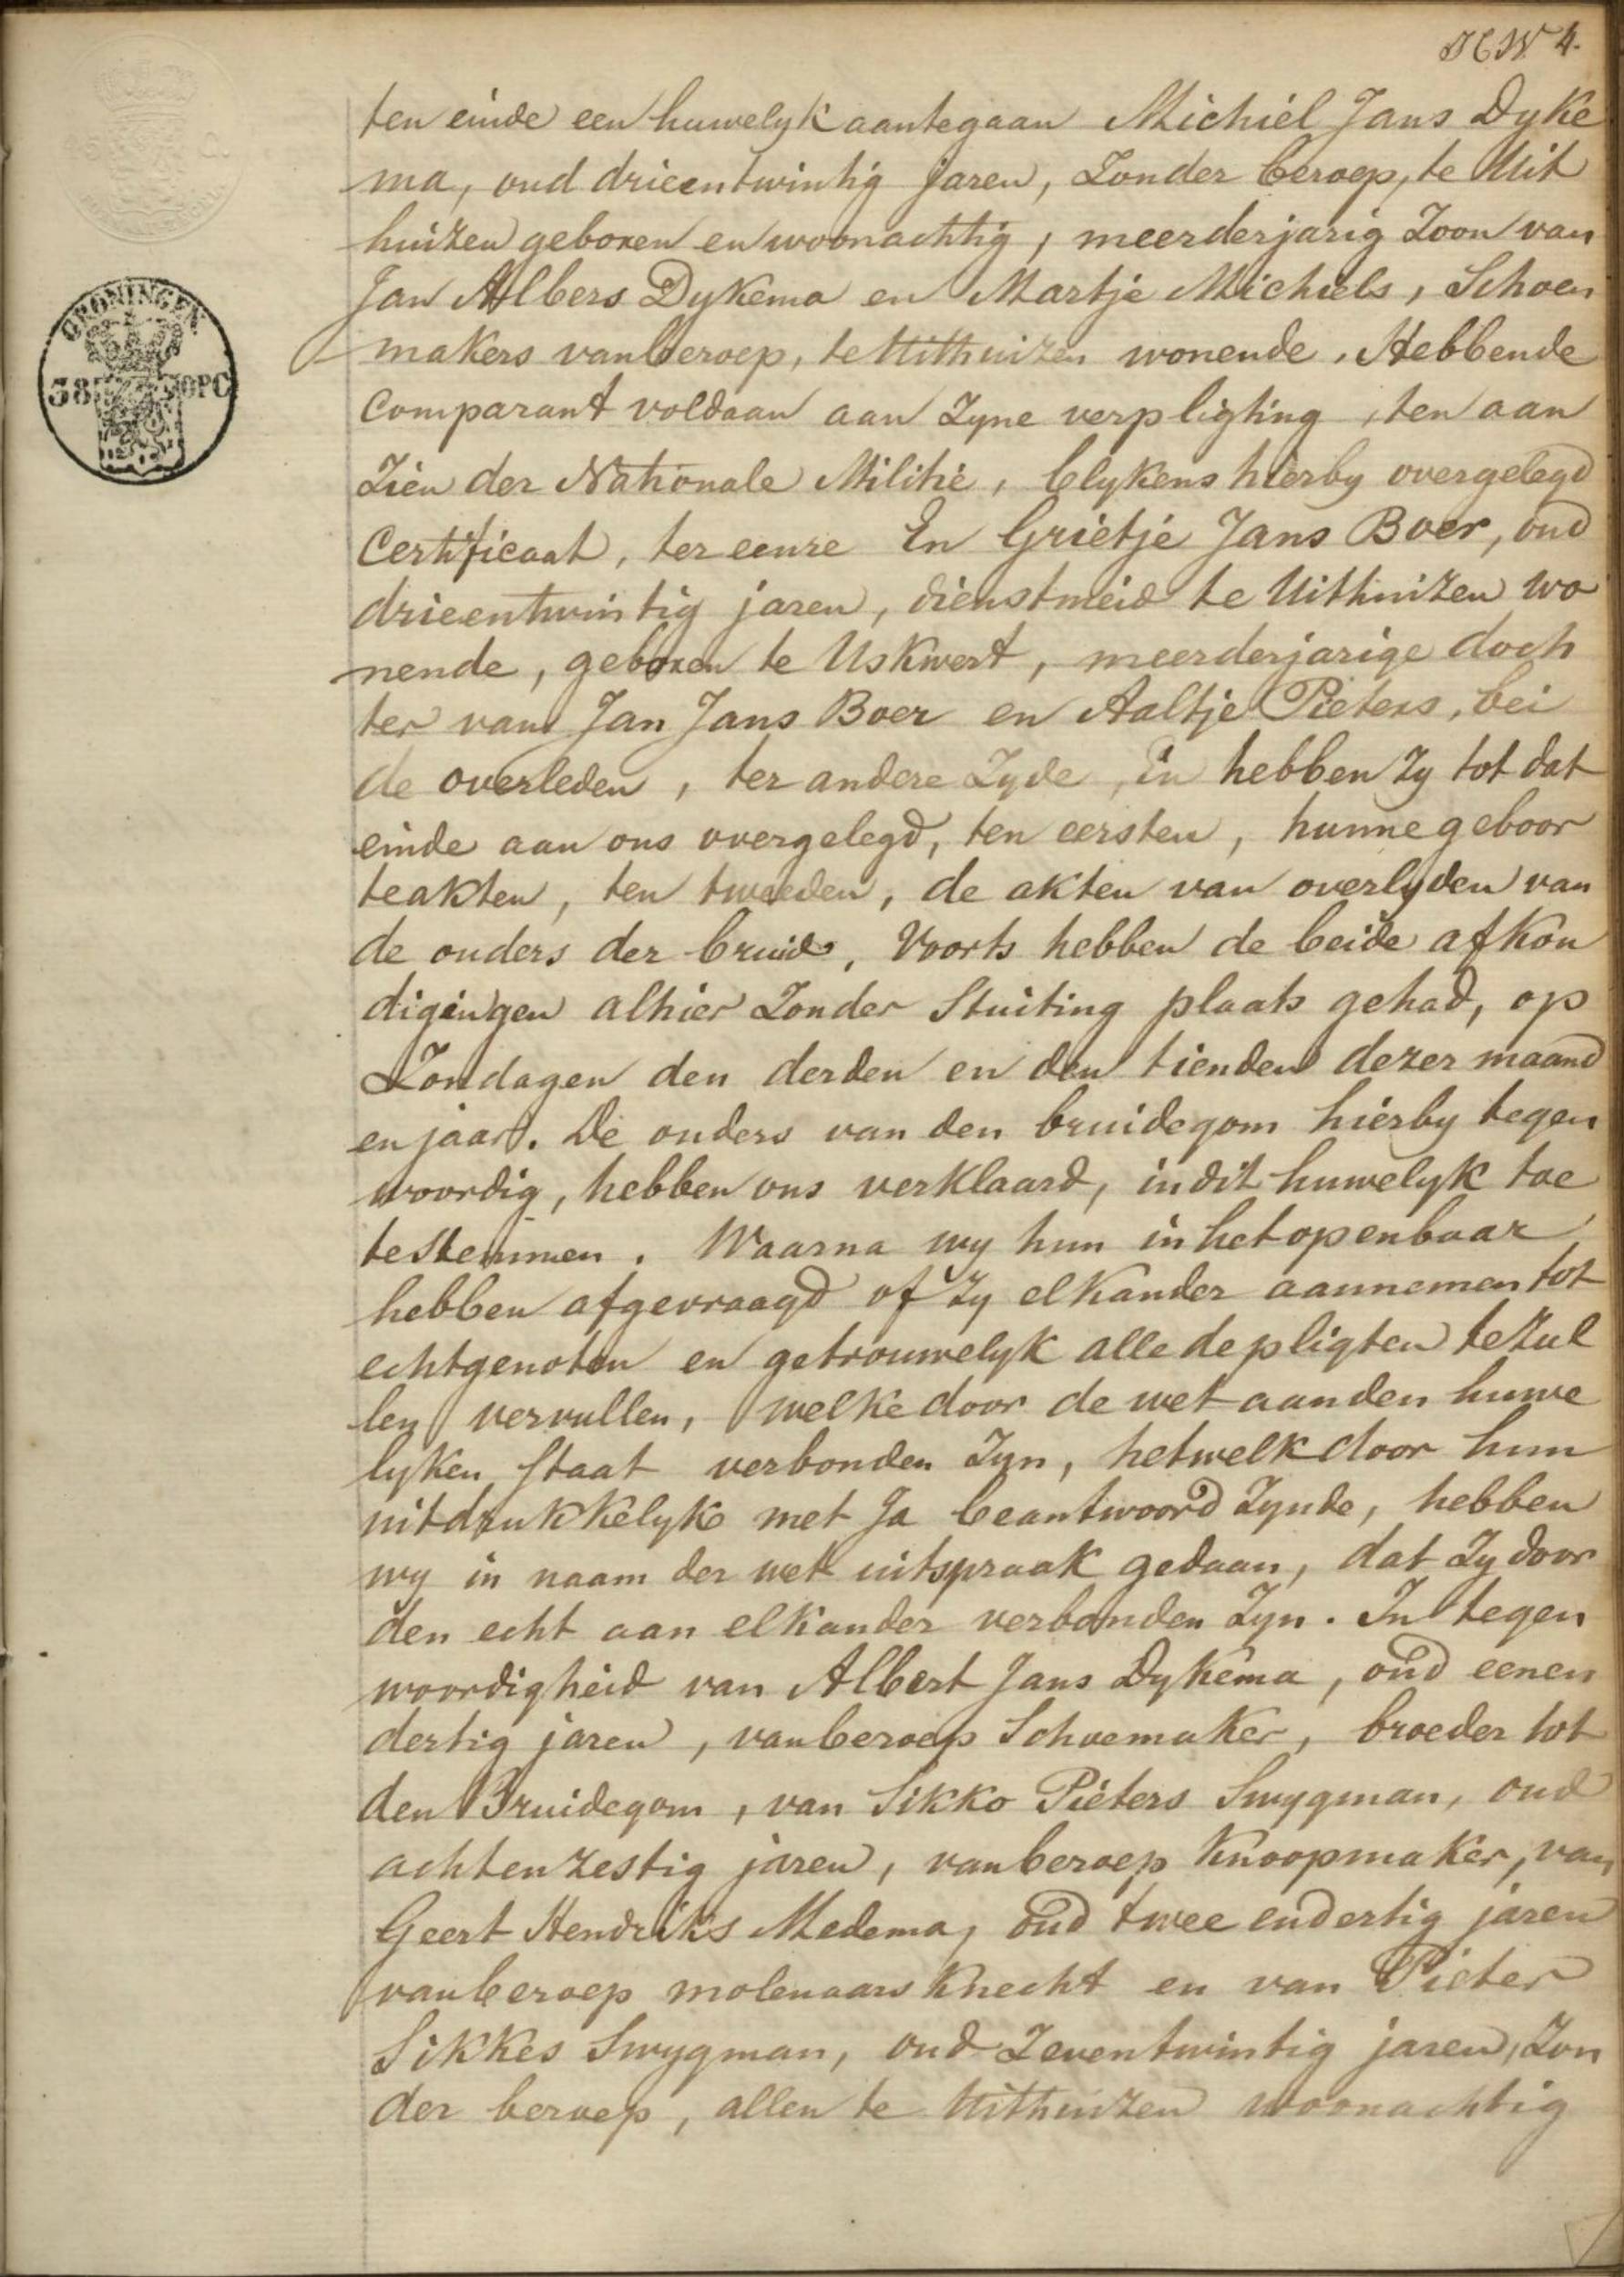 HW 4.
ten einde een huwelyk aantegaan Michiel Jans Dyke
ma, oud drieentwintig jaren, Zonder beroep, te Uit
huizen geboren en woonachtig, meerderjarig Zoon van
Jan Albers Dykema en Martje Michiels, Schoen
makers van beroep, te Uithuizen wonende. Hebbende
Comparant voldaan aan Zyne verpligting, ten aan
Zien der Nationale Militie, blykens hierby overgelegd
Certificaat, ter eenre En Grietje Jans Boer, oud
drieentwintig jaren, dienstmeid te Uithuizen wo
nende, geboren te Uskwert, meerderjarige doch
ter van Jan Jans Boer en Aaltje Pieters, bei
de overleden, ter andere Zyde, en hebben Zy tot dat
einde aan ons overgelegd, ten eersten, hunne geboor
teakten, ten tweeden, de akten van overlyden van
de ouders der bruid, Voorts hebben de beide afkon
digingen alhier Zonder Stuiting plaats gehad, op
Zondagen den derden en den tienden dezer maand
en jaar. De ouders van den bruidegom hierby tegen
woordig, hebben ons verklaard, in dit huwelyk toe
testemmen. Waarna wy hun in het openbaar
hebben afgevraagd of Zy elkander aannemen tot
echtgenoten en getrouwelyk alle de pligten te Zul
len vervullen, welke door de wet aan den huwe
lyken Staat verbonden Zyn, hetwelk door hun
uitdrukkelyk met Ja beantwoord Zynde, hebben
wy in naam der wet uitspraak gedaan, dat Zy door
den echt aan elkander verbonden Zyn. In tegen
woordigheid van Albert Jans Dykema, oud eenen
dertig jaren, van beroep Schoemaker, broeder tot
den Bruidegom, van Sikko Pieters Swygman, oud
achtenzestig jaren, van beroep Knoopmaker, van
Geert Hendriks Medema, oud twee endertig jaren
van beroep molenaars Knecht en van Pieter
Sikkes Swygman, oud Zeventwintig jaren, Zon
der beroep, allen te Uithuizen woonachtig
GRONINGEN
38 OPC